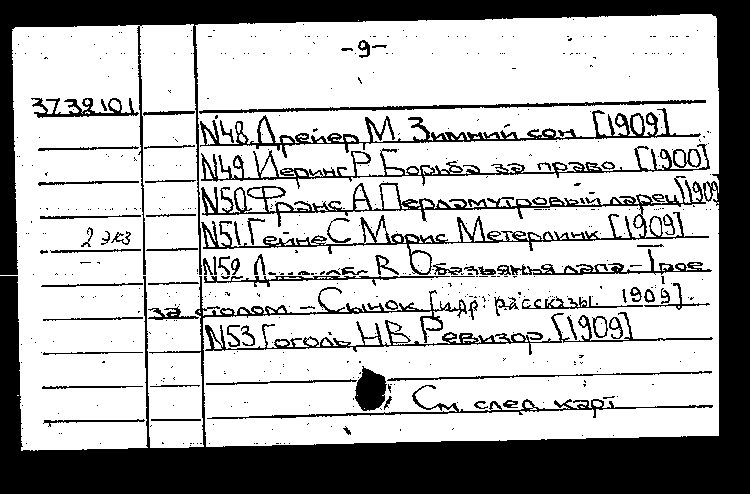 -9-
3732101
N48. Дрейер, М. Зимний сон. [1909]
N49. Иеринг, Р. Борьба за право. [1900]
N50. Франс, А. Перламутровый ларец [1909
2 экз N51. Гейне, С. Морис Метерлинк [1909]
N52. Джекобс, В. Обезьянья лапа. - Трое
за столом. - Сынок [и др. рассказы. 1909].
N53. Гоголь, Н.В. Ревизор. [1909]
См. след. карт